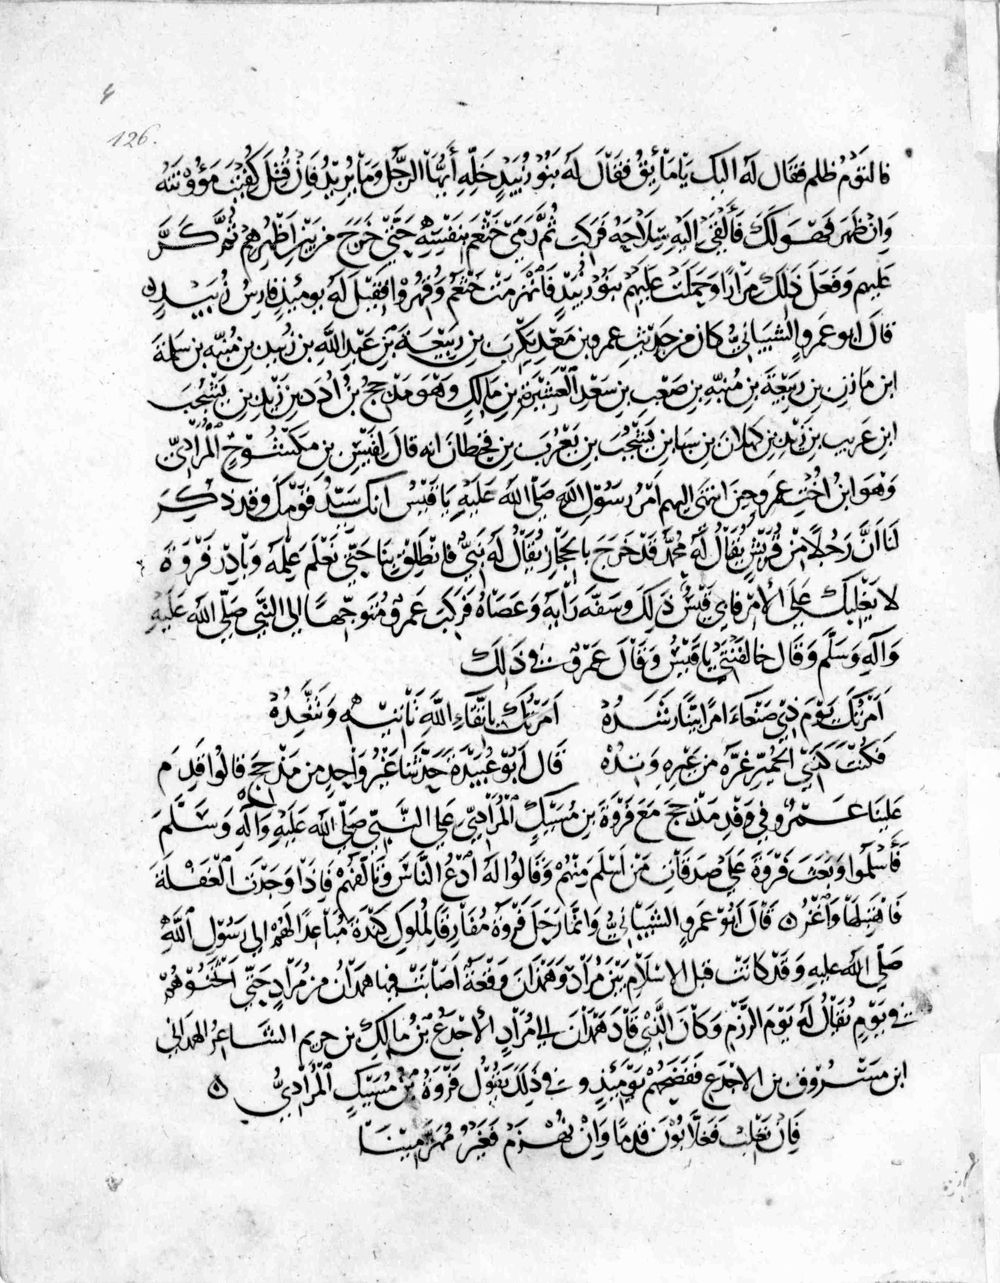 126
فالتوم ظلم فقال له اليك يا مائق فقال له بنو زبيد خله أيها الرجل وما يريد فان قتل كفيت مؤونته
وان ظهر فهو لك فألقى اليه سلاحه فركب ثم رمى خثعم بنفسه حتى خرج من بين اظهرهم ثم كر
عليهم وفعل ذلك مرارا وحملت عليهم بنو زبيد فانهزمت خثعم وقهروا فقيل له يومئذ فارس زبيد
قال ابو عمرو الشيباني كان من حديث عمرو بن معد يكرب بن ربيعة بن عبد الله بن زبيد بن منبه بن سلمة
ابن مازن بن ربيعة بن منبه بن صعب بن سعد العشيرة بن مالك وهو مذحج بن أدد بن زيد بن يشجب
ابن عريب بن زيد بن كهلان بن سبا بن يشجب بن يعرب بن قحطان انه قال لقيس بن مكشوح المرادي
وهو ابن اخت عمرو حين انتهى اليهم امر رسول الله صلى الله عليه يا قيس انك سيد قومك وقد ذكر
لنا ان رجلا من قريش يقال له محمد قد خرج بالحجاز يقال له نبي فانطلق بنا حتى نعلم علمه وبادر فروة
لا يغلبك على الأمر فابى قيس ذلك وسفه رأيه وعصاه فركب عمرو متوجها الى النبي صلى الله عليه
وآله وسلم وقال خالفتني يا قيس وقال عمرو في ذلك
امرتك يوم ذي صنعاء امرا بينا رشده امرتك باتقاء الله تأتيه وتتعده
فكنت كذي الحمير غره من عيره وتده قال ابو عبيدة حدثنا غير واحد من مذحج قالوا قدم
علينا عمرو في وفد مذحج مع فروة بن مسيك المرادي على النبي صلى الله عليه وآله وسلم
فأسلموا وبعث فروة على صدقات من اسلم منهم وقالوا له ادع الناس وتألفهم فاذا وجدت الغفلة
فاهتبلها واغز قال ابو عمرو الشيباني وانما رحل فروة مفارقا لملوك كندة مباعدا لهم الى رسول الله
صلى الله عليه وقد كانت قبل الاسلام بين مراد وهمدان وقعة اصابت فيها همدان من مراد حتى اثخنوهم
في يوم يقال له يوم الرزم وكان الذي قاد همدان الى مراد الأجدع بن مالك بن حريم الشاعر الهمداني
ابن مسروق بن الاجدع ففضحهم يومئذ وفي ذلك يقول فروة بن مسيك المرادي
فان نغلب فغلابون قدما وان نهزم فغير مهزمينا